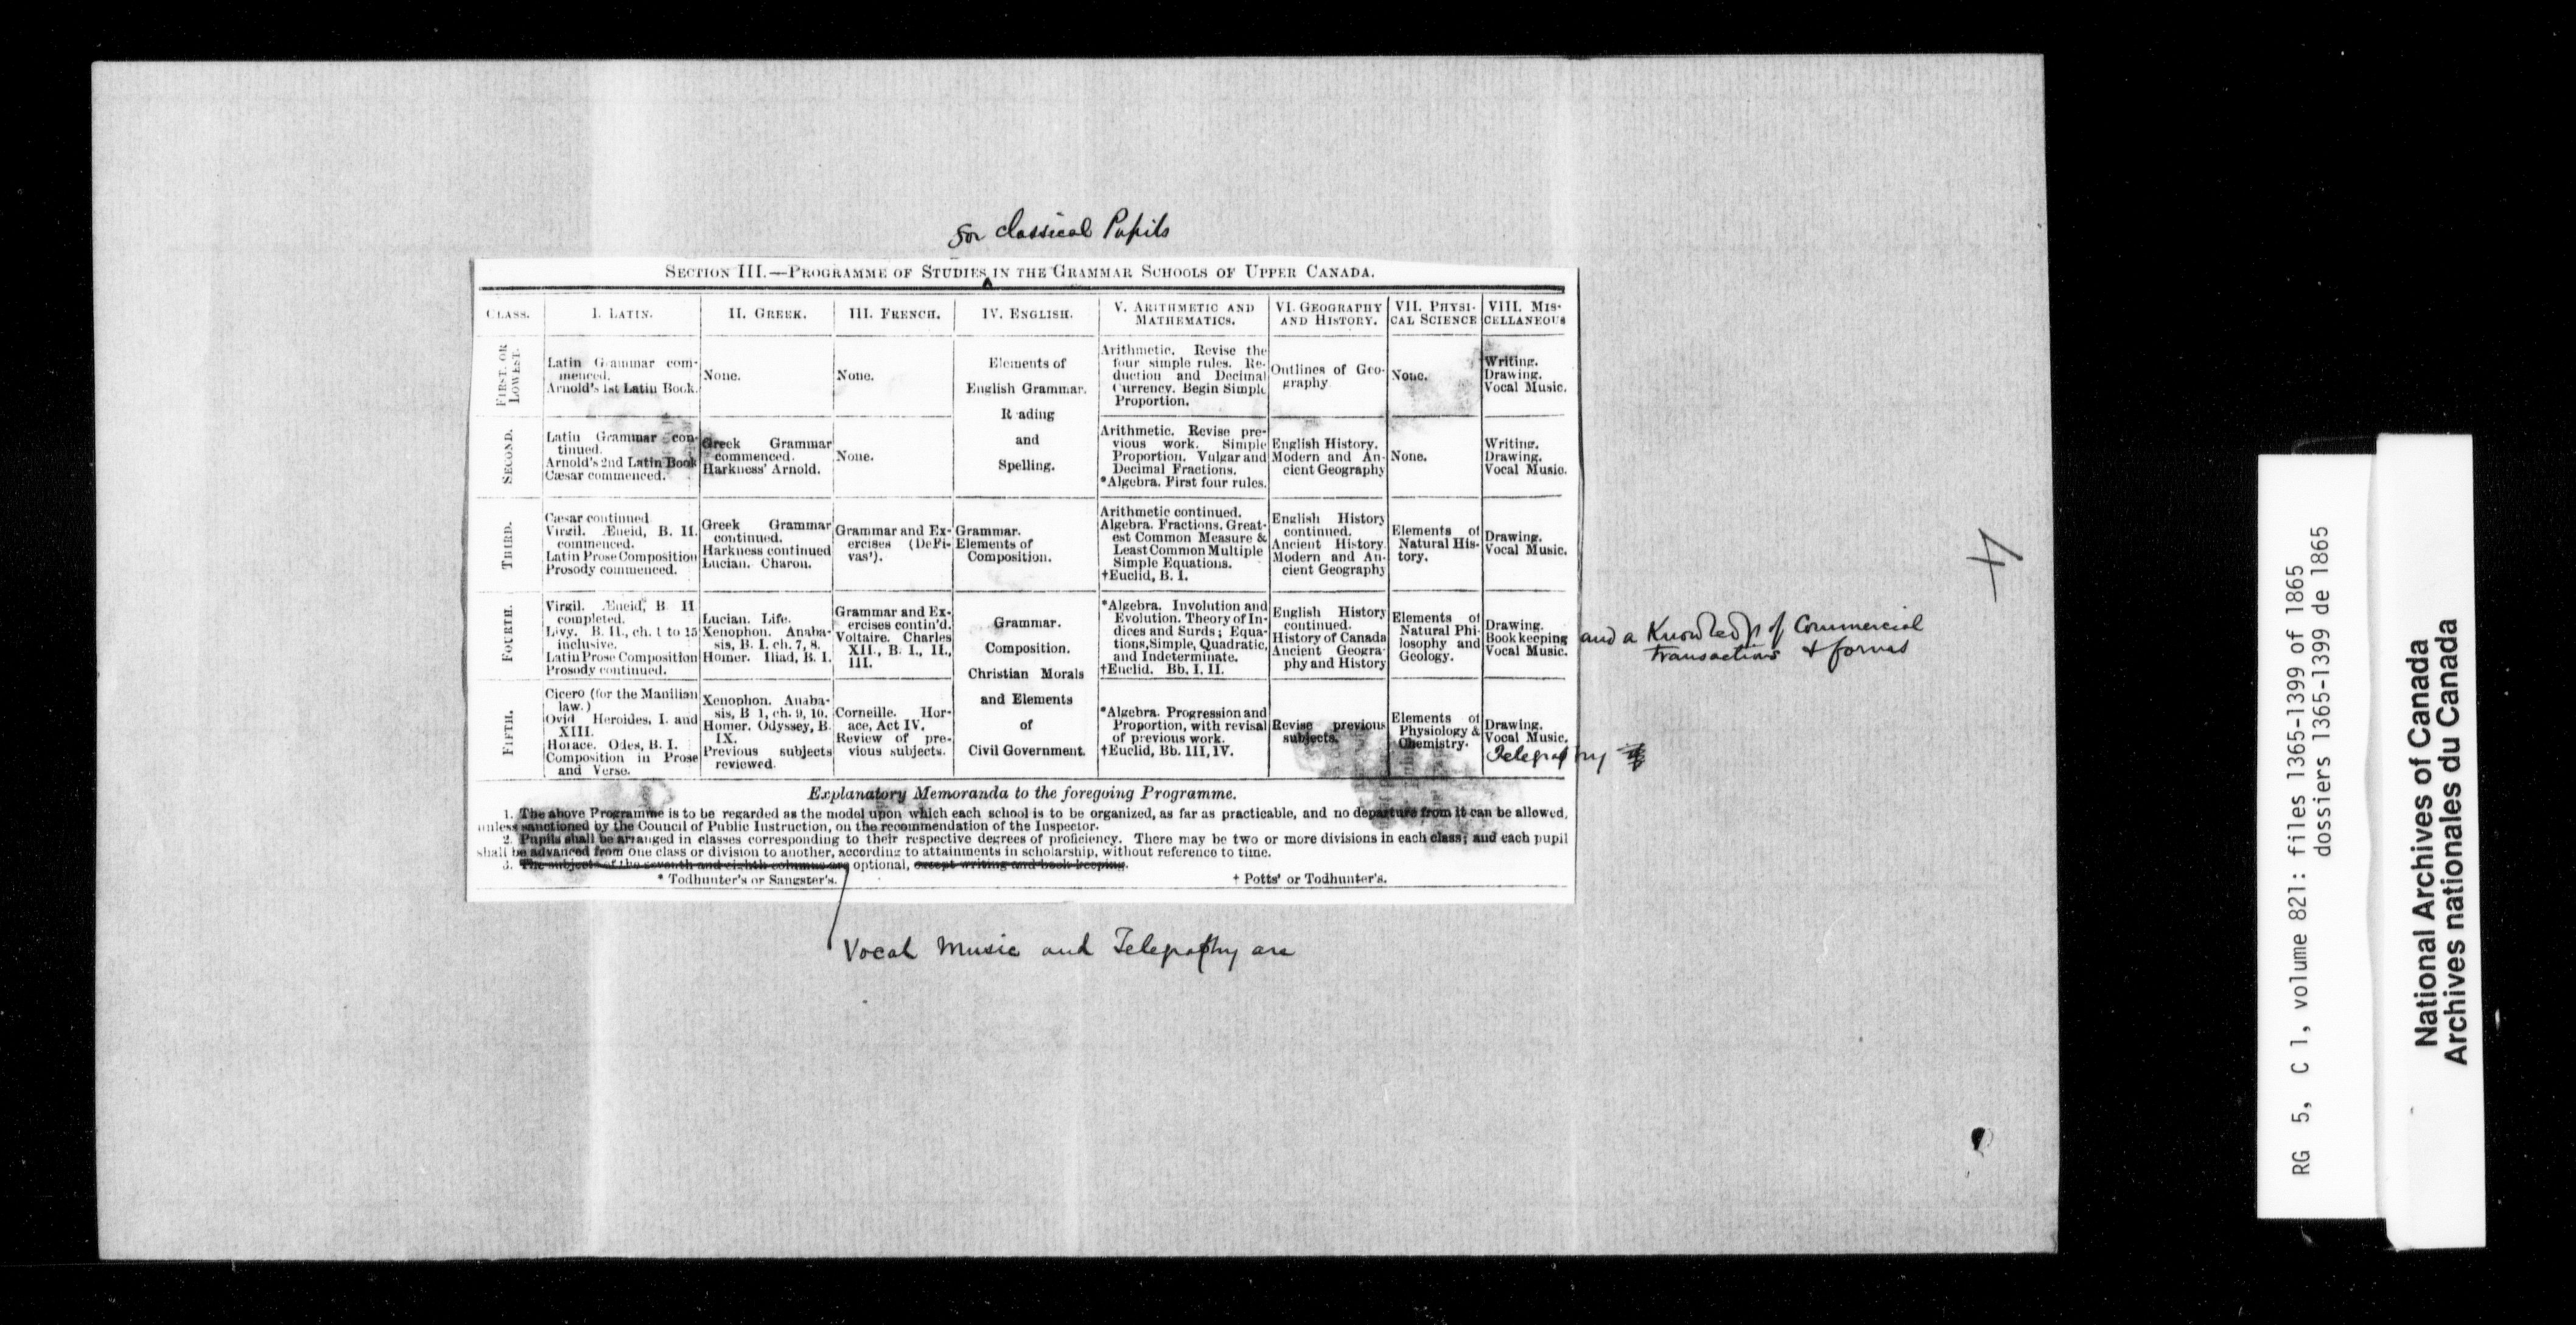 for classical Pupils
SECTION III.—PROGRAMME OF STUDIES IN THE GRAMMAR SCHOOLS OF UPPER CANADA.
^
CLASS.
I. LATIN.
II. GREEK.
III. FRENCH.
IV. ENGLISH.
V. ARITHMETIC AND
MATHEMATICS.
VI. GEOGRAPHY
AND HISTORY.
VII. PHYSI-
CAL SCIENCE
VIII. MIS-
CELLANEOUS
FIRST. OR
LOWEST.
Latin Grammar com-
menced.
Arnold's 1st Latin Book.
None.
None.
Elements of
English Grammar.
R ading
and
Spelling.
Arithmetic. Revise the
four simple rules. Re-
duction and Decimal
Currency. Begin Simple
Proportion.
Outlines of Geo-
graphy
None.
Writing.
Drawing.
Vocal Music.
SECOND.
Latin Grammar con-
tinued.
Arnold's 2nd Latin Book
Cæsar commenced.
Greek Grammar
commenced.
Harkness' Arnold.
None.
Arithmetic. Revise pre-
vious work. Simple
Proportion. Vulgar and
Decimal Fractions.
*Algebra. First four rules.
English History.
Modern and An-
cient Geography
None.
Writing.
Drawing.
Vocal Music.
THIRD.
Cæsar continued
Virgil. Æneid, B. II.
commenced.
Latin Prose Composition
Prosody commenced.
Greek Grammar
continued.
Harkness continued
Lucian. Charon.
Grammar and Ex-
ercises (DeFi-
vas').
Grammar.
Elements of
Composition.
Arithmetic continued.
Algebra. Fractions. Great-
est Common Measure &
Least Common Multiple
Simple Equations.
†Euclid, B. I.
English History
continued.
Ancient History.
Modern and An-
cient Geography
Elements of
Natural His-
tory.
Drawing.
Vocal Music.
FOURTH.
Virgil. Æneid, B II
completed.
Livy. B. II., ch. 1 to 15
inclusive.
Latin Prose Composition
Prosody continued.
Lucian. Life.
Xenophon. Anaba-
sis, B. I. ch. 7, 8.
Homer. Iliad, B. I.
Grammar and Ex-
ercises contin'd.
Voltaire. Charles
XII., B. I., II.,
III.
Grammar.
Composition.
Christian Morals
and Elements
of
Civil Government.
*Algebra. Involution and
Evolution. Theory of In-
dices and Surds; Equa-
tions, Simple, Quadratic,
and Indeterminate.
†Euclid. Bb. I. II.
English History
continued.
History of Canada
Ancient Geogra-
phy and History
Elements of
Natural Phi-
losophy and
Geology.
Drawing.
Book keeping
Vocal Music.
and a Knowledge of Commercial
transactions & forms
FIFTH.
Cicero (for the Manilian
law.)
Ovid Heroides, I. and
XIII.
Horace. Odes, B. I.
Composition in Prose
and Verse.
Xenophon. Anaba-
sis, B 1, ch. 9, 10.
Homer. Odyssey, B.
IX.
Previous subjects
reviewed.
Corneille. Hor-
ace, Act IV.
Review of pre-
vious subjects.
*Algebra. Progression and
Proportion, with revisal
of previous work.
†Euclid, Bb. III, IV.
Revise previous
subjects.
Elements of
Physiology &
Chemistry.
Drawing.
Vocal Music.
Telegraphy
Explanatory Memoranda to the foregoing Programme.
1. The above Programme is to be regarded as the model upon which each school is to be organized, as far as practicable, and no departure from it can be allowed,
unless sanctioned by the Council of Public Instruction, on the recommendation of the Inspector.
2. Pupils shall be arranged in classes corresponding to their respective degrees of proficiency. There may be two or more divisions in each class; and each pupil
shall be advanced from one class or division to another, according to attainments in scholarship, without reference to time.
3. The subjects of the seventh and eighth columns are optional, except writing and book-keeping.
* Todhunter's or Sangster's.
† Potts' or Todhunter's.
Vocal Music and Telegraphy are
RG 5, C 1, volume 821: files 1365-1399 of 1865
dossiers 1365-1399 de 1865
National Archives of Canada
Archives nationales du Canada